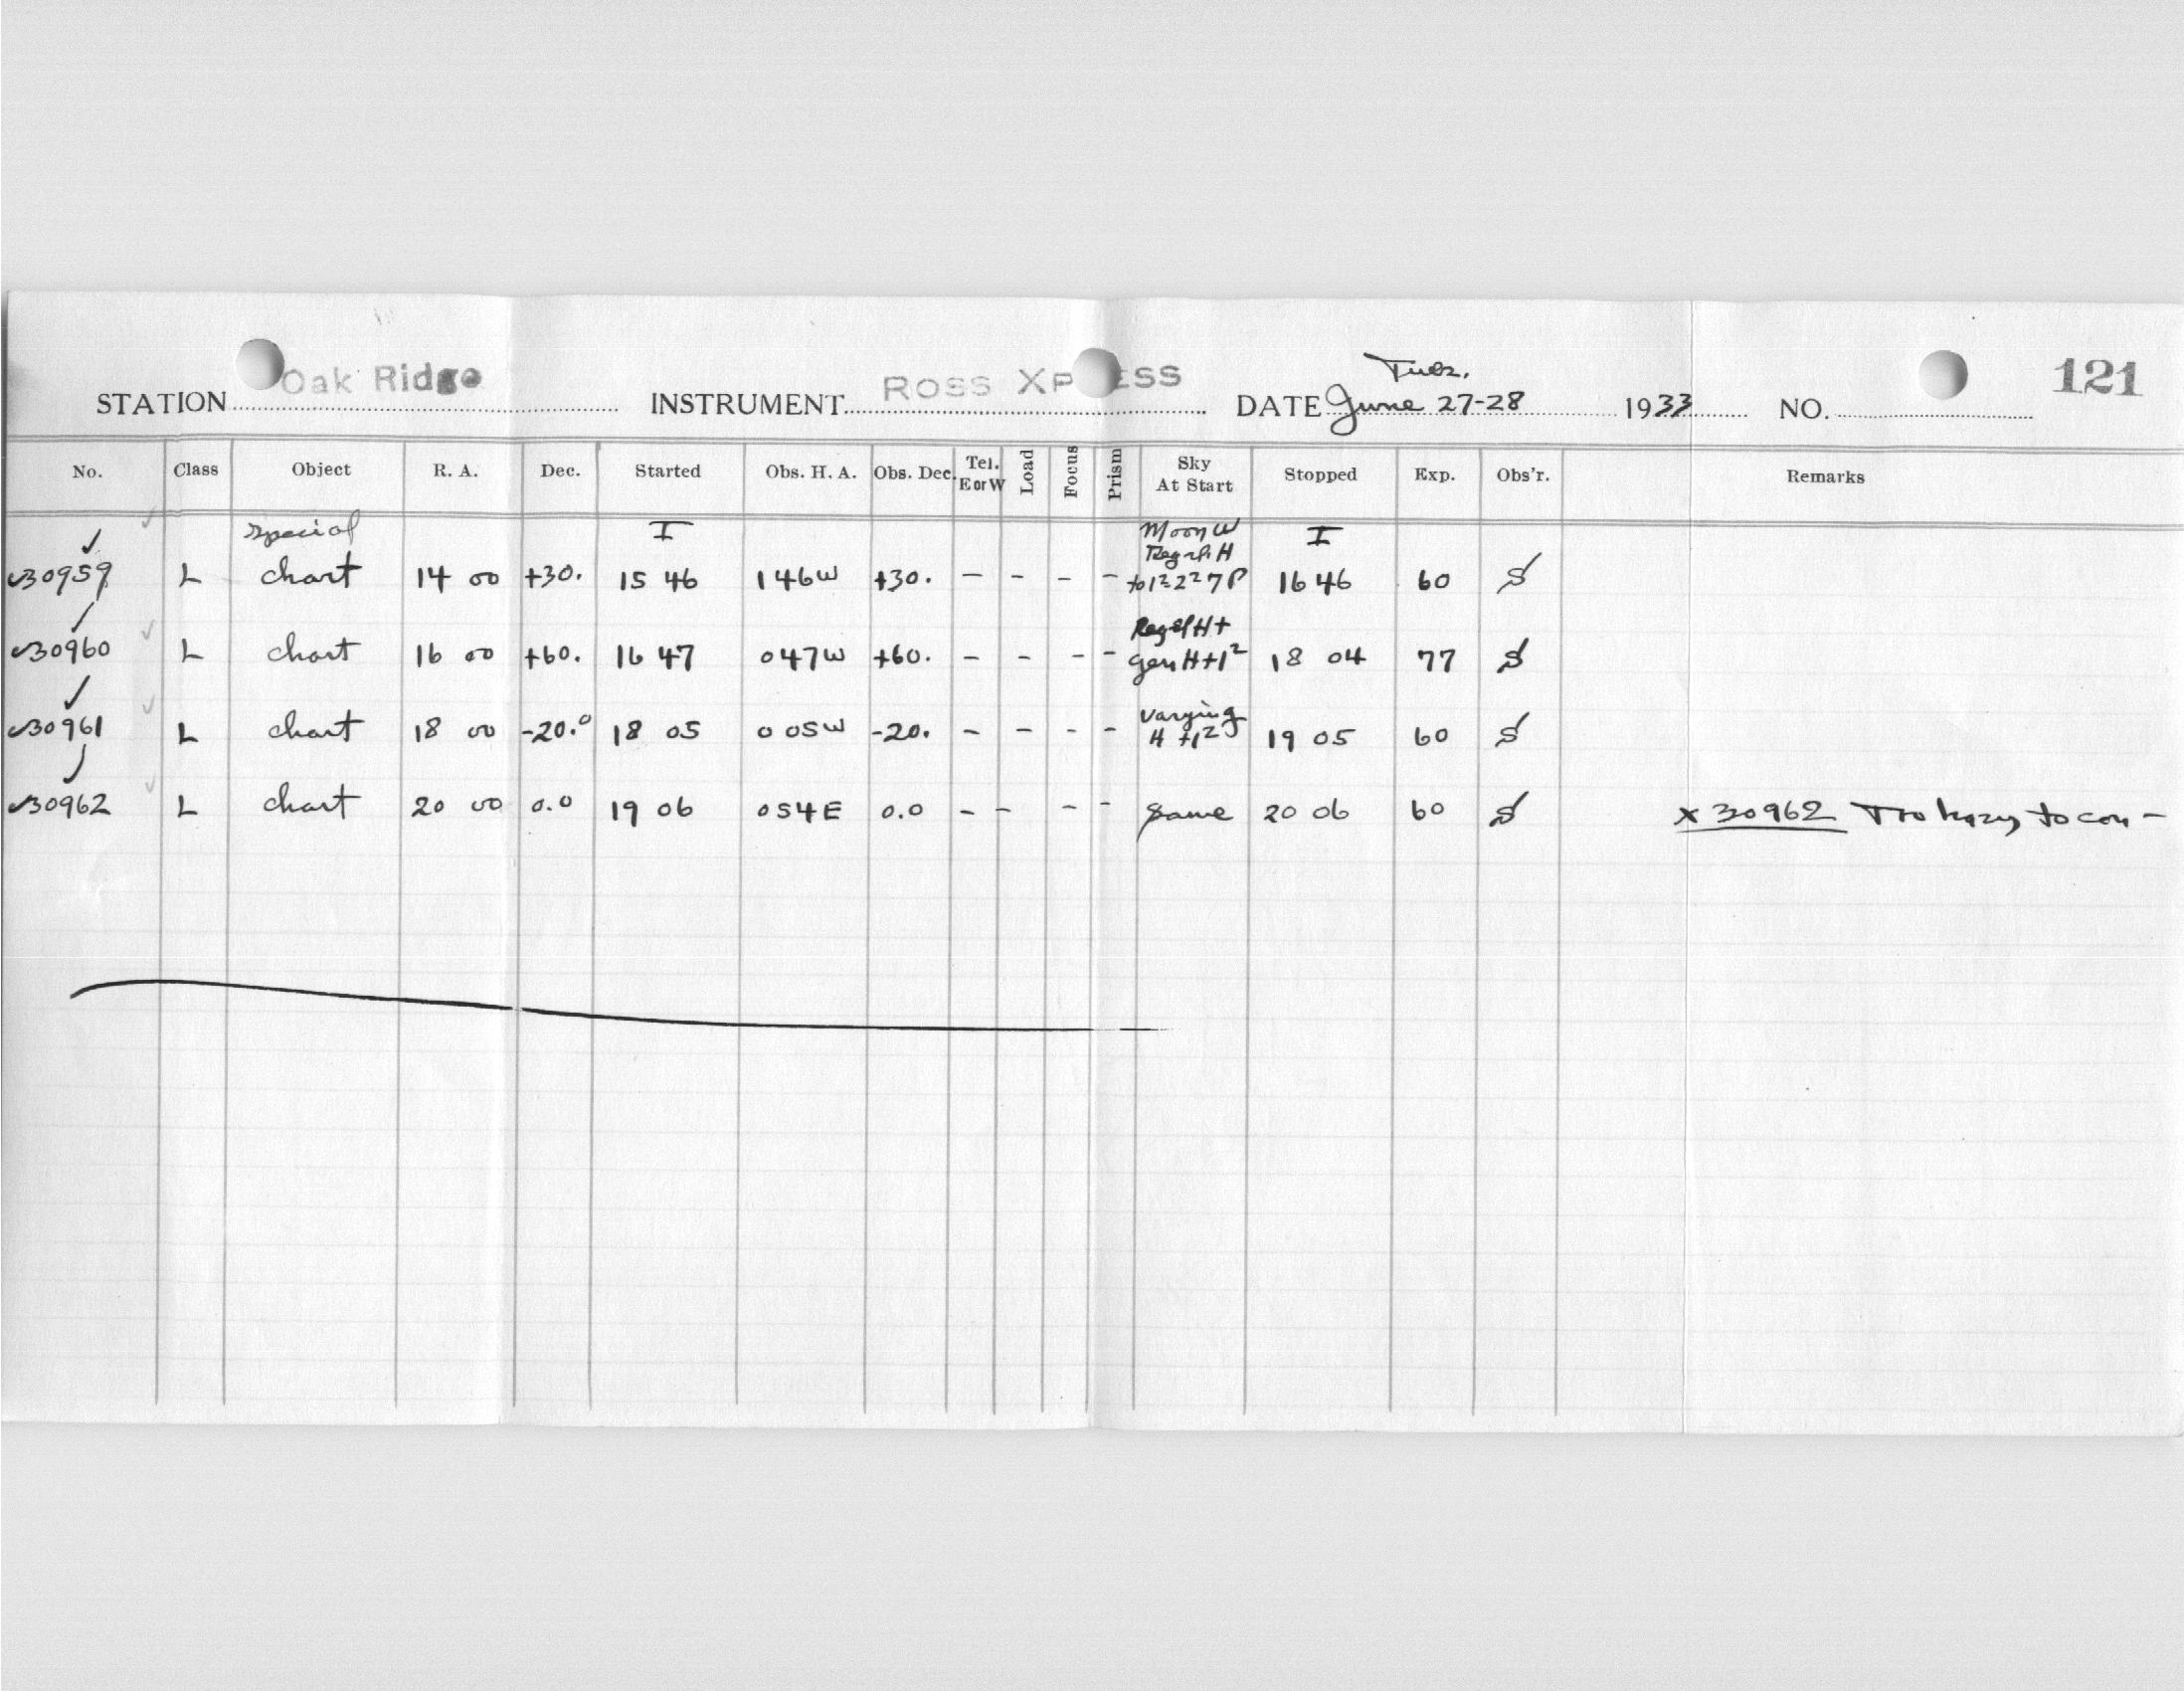 Oak Ridge ROSS XP ESS Tues. 121
STATION INSTRUMENT DATE June 27-28 1933 NO.
No. Class Object R. A. Dec. Started Obs. H. A. Obs. Dec. Tel. E or W Load Focus Prism Sky At Start Stopped Exp. Obs'r. Remarks
special I Moon W I
H
✓30959 L chart 14 00 +30. 15 46 1 46W +30. - - - - to 1² 2² 7P 16 46 60 S
H+
✓30960 L chart 16 00 +60. 16 47 0 47W +60. - - - - gen H+1² 18 04 77 S
varying
✓30961 L chart 18 00 -20.0 18 05 0 05W -20. - - - - H +1² 19 05 60 S
✓30962 L chart 20 00 0.0 19 06 0 54E 0.0 - - - - Same 20 06 60 S x 30962 Too hazy to con-